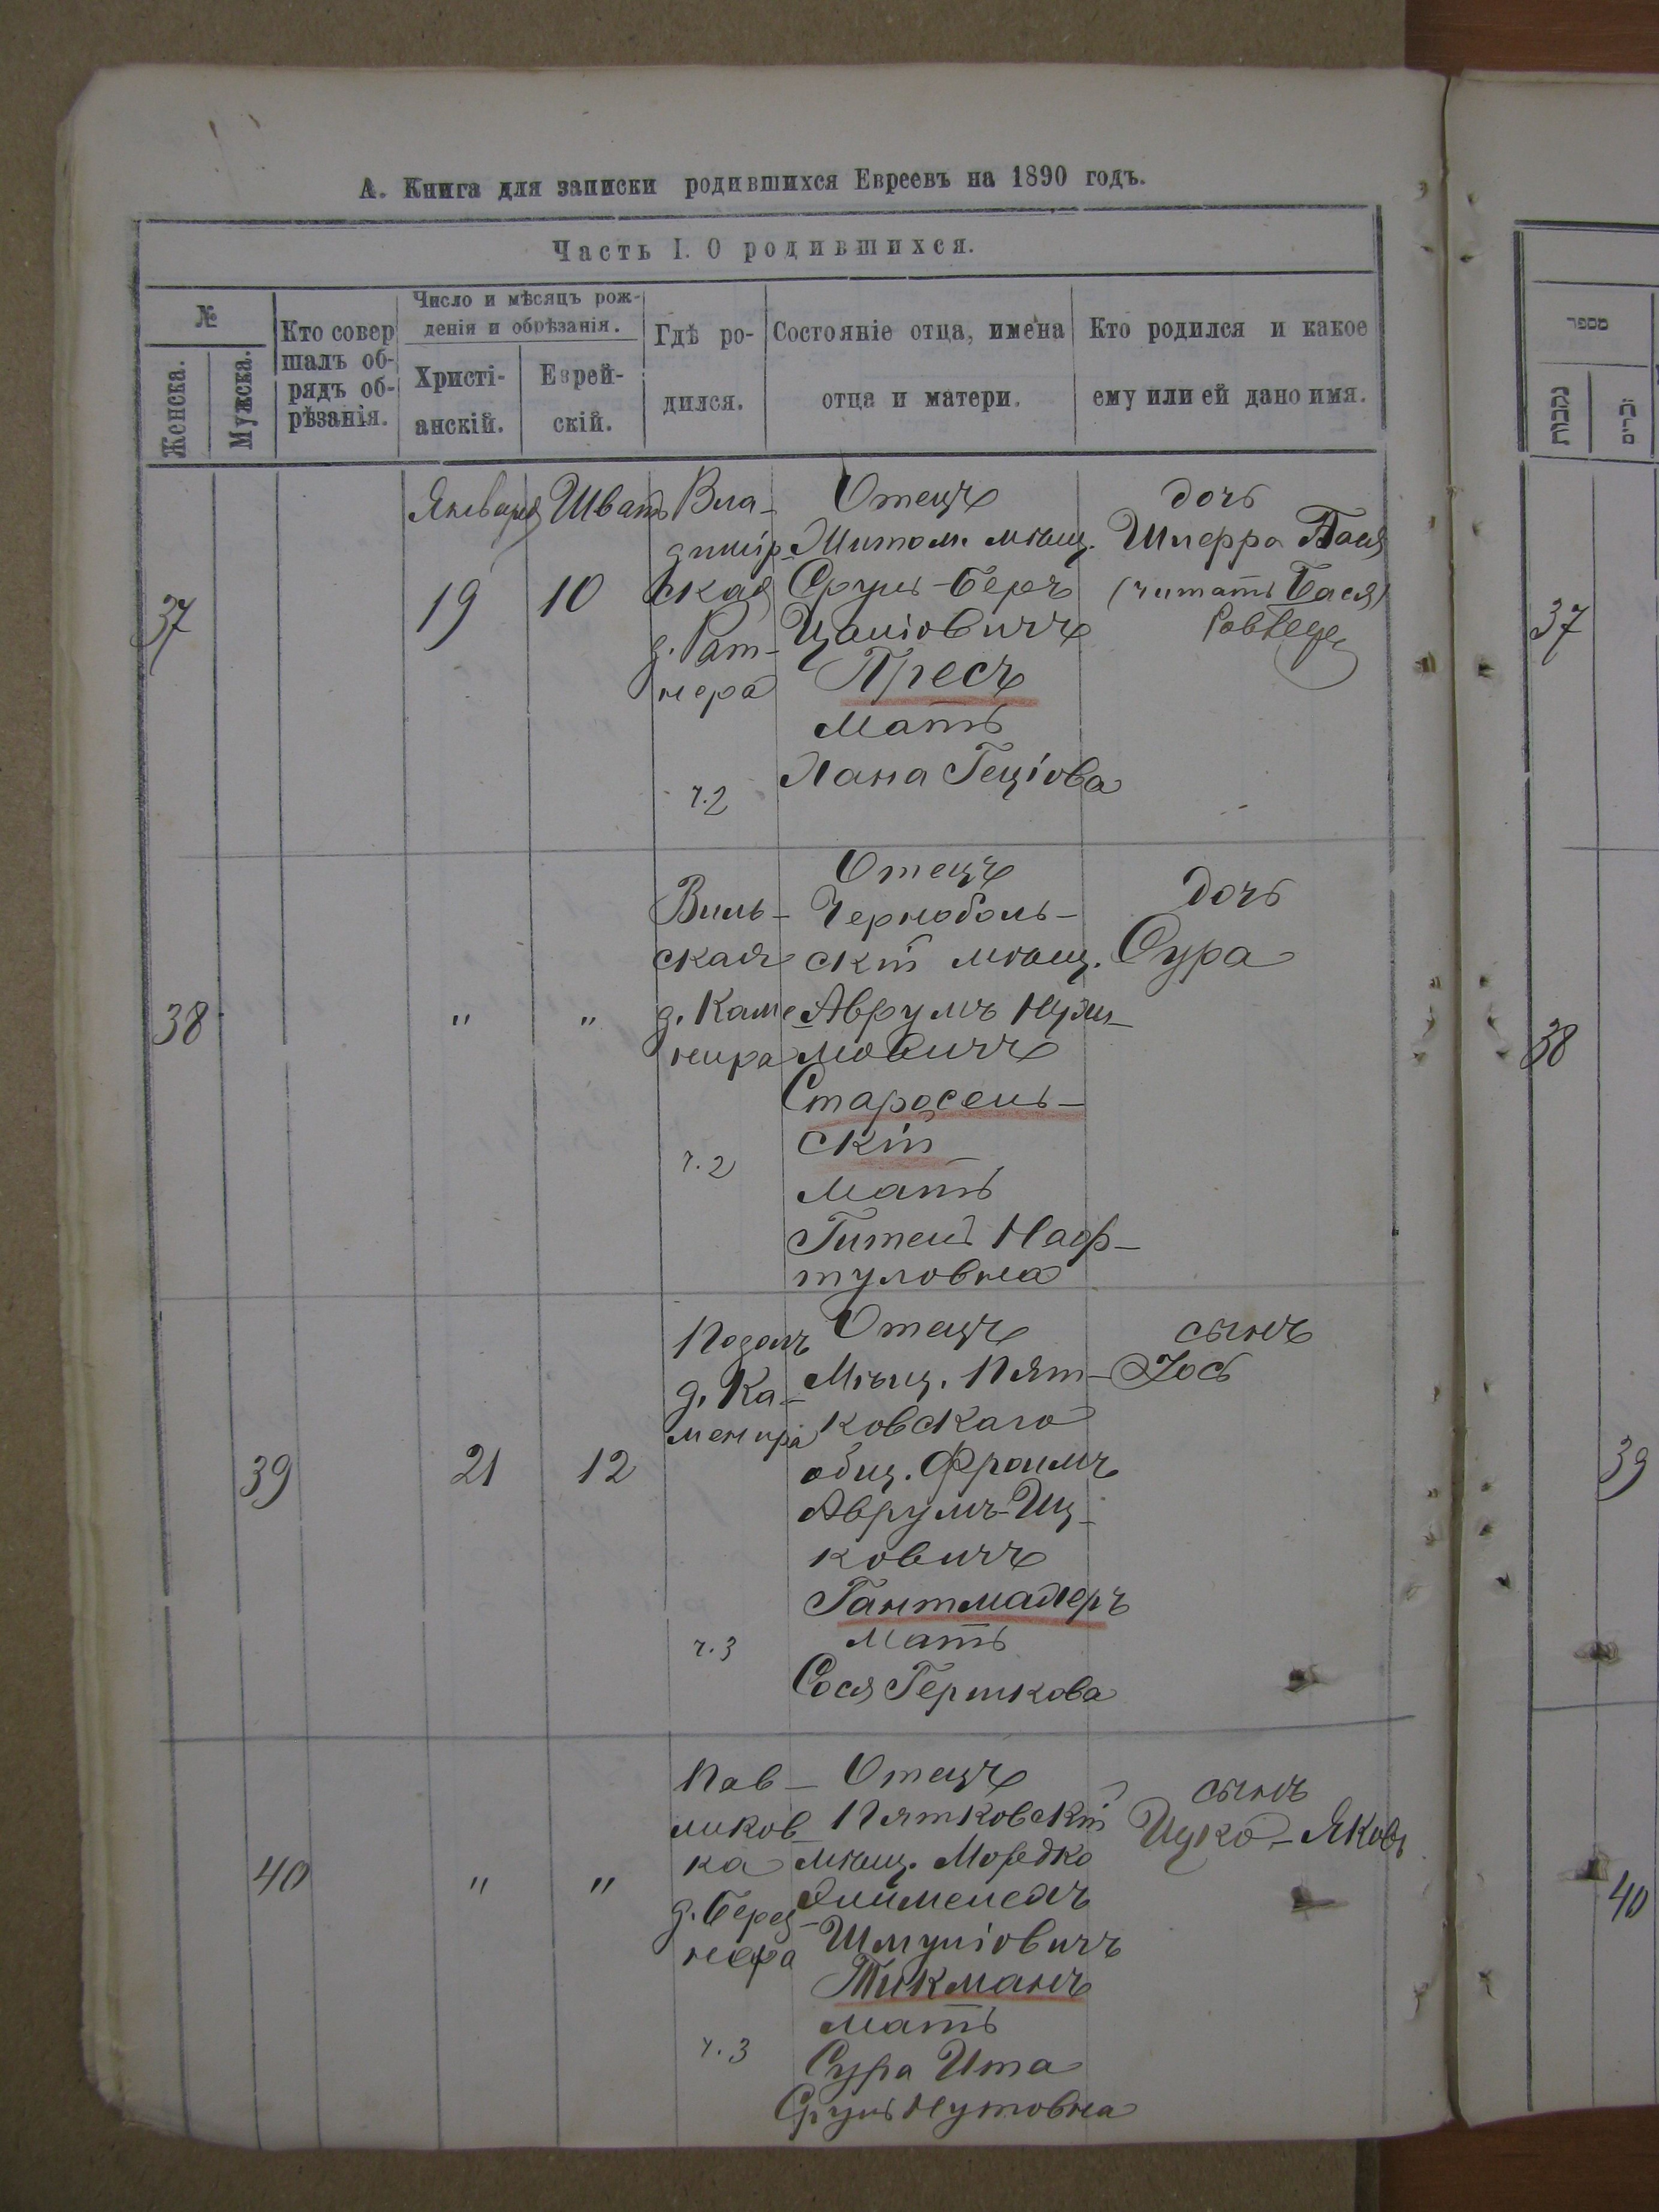 А. Книга для записки родившихся Евреевъ на 1890 годъ.
Часть I. О родившихся.
№
Женска.
Мужска.
Кто совер
шалъ об-
рядъ об-
рѣзанія.
Число и мѣсяцъ рож-
денія и обрѣзанія.
Христі-
анскій.
Еврей-
скій.
Гдѣ ро-
дился.
Состояніе отца, имена
отца и матери.
Кто родился и какое
ему или ей дано имя.
37
Января
19
Шватъ
10
Вла-
димір-
ская
д. Рат-
нера
ч. 2
Отецъ
Житом. мѣщ.
Сруль-Беръ
Цаліовичъ
Пресъ
Мать
Хана Геціова
дочь
Шперра Пася
(читать Бася)
38
"
"
Виль-
ская
д. Каме-
нира
ч. 2
Отецъ
Черноболь-
скій мѣщ.
Аврумъ
мовичъ
Старосель-
скій
Мать
Гитель Наф-
туловна
дочь
Сура
39
21
12
Подолъ
д. Ка-
менира
ч. 3
Отецъ
Мѣщ. Пят-
ковскаго
общ. Фроимъ
Аврумъ-Иц-
ковичъ
Гантмахеръ
Мать
Сося Гершкова
сынъ
Іось
40
"
"
Пав-
ликов-
ка
д. Берез-
нера
ч. 3
Отецъ
Пятковскій
мѣщ. Мордко
Элимелехъ
Шмуліовичъ
Тикманъ
Мать
Сура Ита
Срульнутовна
сынъ
Ицко-Яковъ
מספר
נקבות
זכרים
37
38
39
40